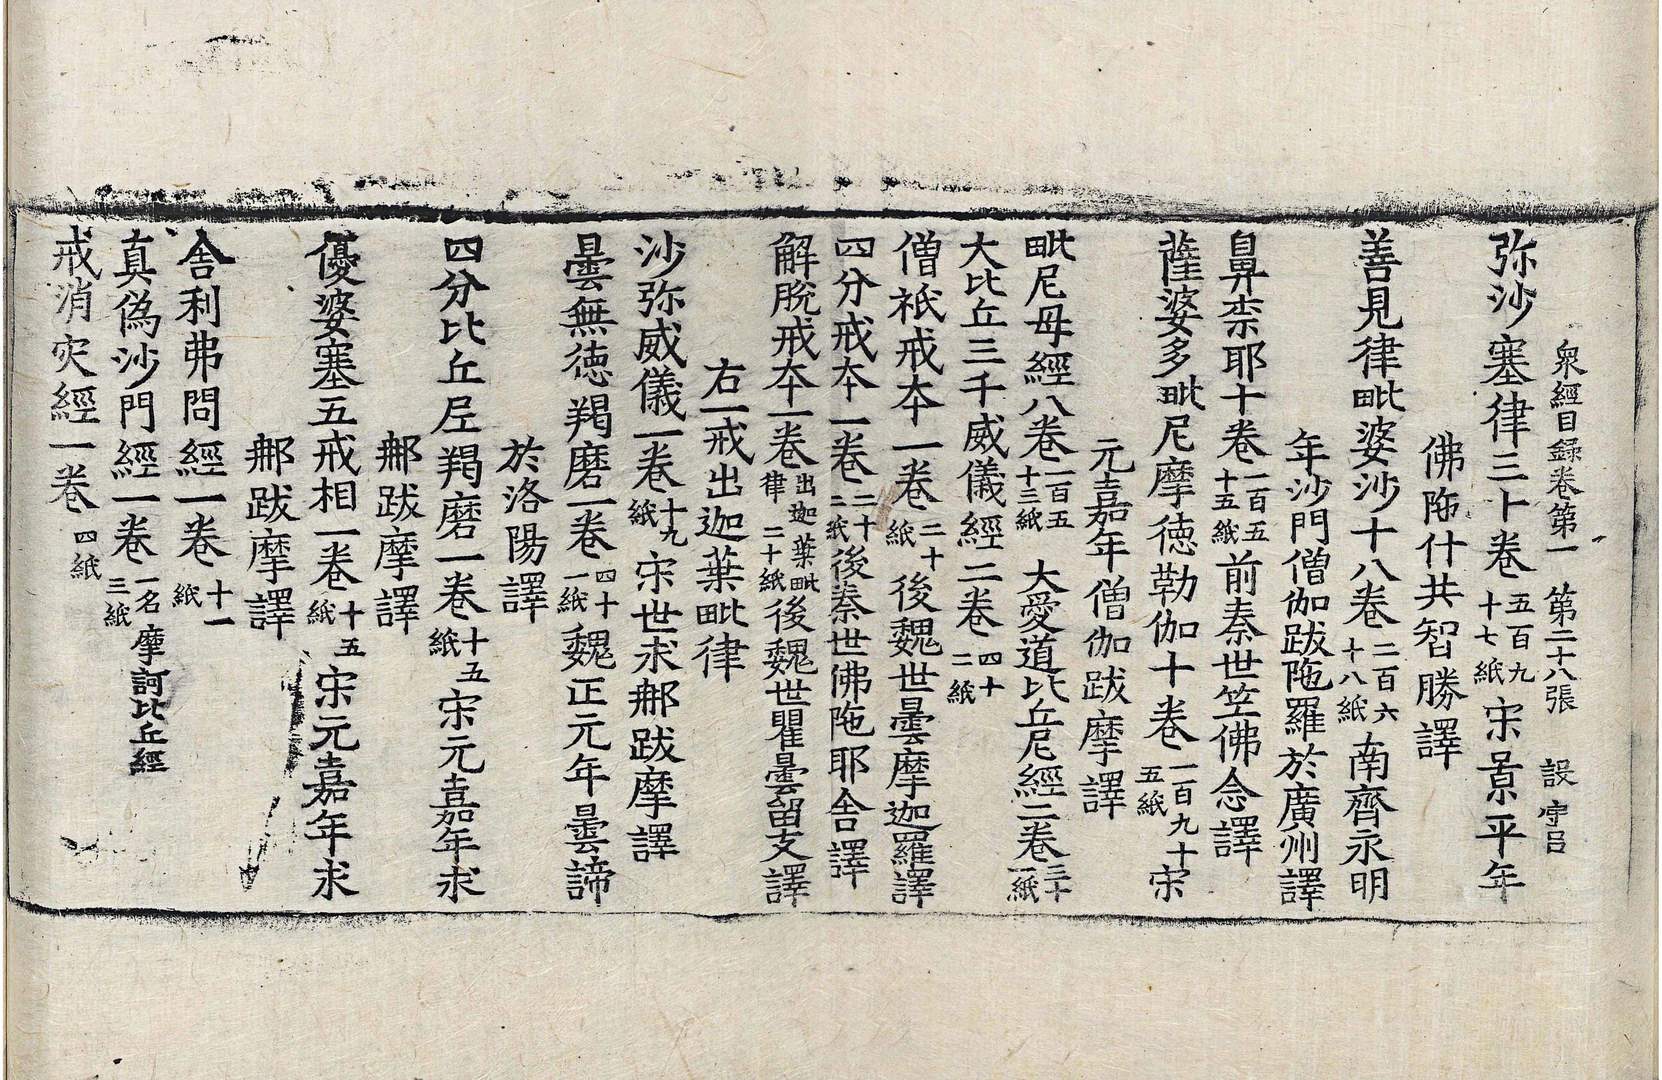 衆經目録卷第一 第二十八張 設 守呂
弥沙塞律三十卷 五百九十七紙 宋景平年
佛陁什共智勝譯
善見律毗婆沙十八卷 二百六十八紙 南齊永明
年沙門僧伽跋陁羅於廣州譯
鼻柰耶十卷 二百五十五紙 前秦世笁佛念譯
薩婆多毗尼摩徳勒伽十卷 一百九十五紙 宋
元嘉年僧伽跋摩譯
毗尼母經八卷 一百五十三紙 大愛道比丘尼經二卷 三十一紙
大比丘三千威儀經二卷 四十二紙
僧祇戒夲一卷 二十紙 後魏世曇摩迦羅譯
四分戒夲一卷 二十二紙 後秦世佛陁耶舎譯
解脫戒夲一卷 出迦葉毗律 二十紙 後魏世瞿曇留支譯
右一戒出迦葉毗律
沙弥威儀一卷 十九紙 宋世求𨙻跋摩譯
曇無徳羯磨一卷 四十一紙 魏正元年曇諦
於洛陽譯
四分比丘尼羯磨一卷 十五紙 宋元嘉年求
𨙻跋摩譯
優婆塞五戒相一卷 十五紙 宋元嘉年求
𨙻跋摩譯
舎利弗問經一卷 十一紙
真偽沙門經一卷 一名摩訶比丘經 三紙
戒消灾經一卷 四紙